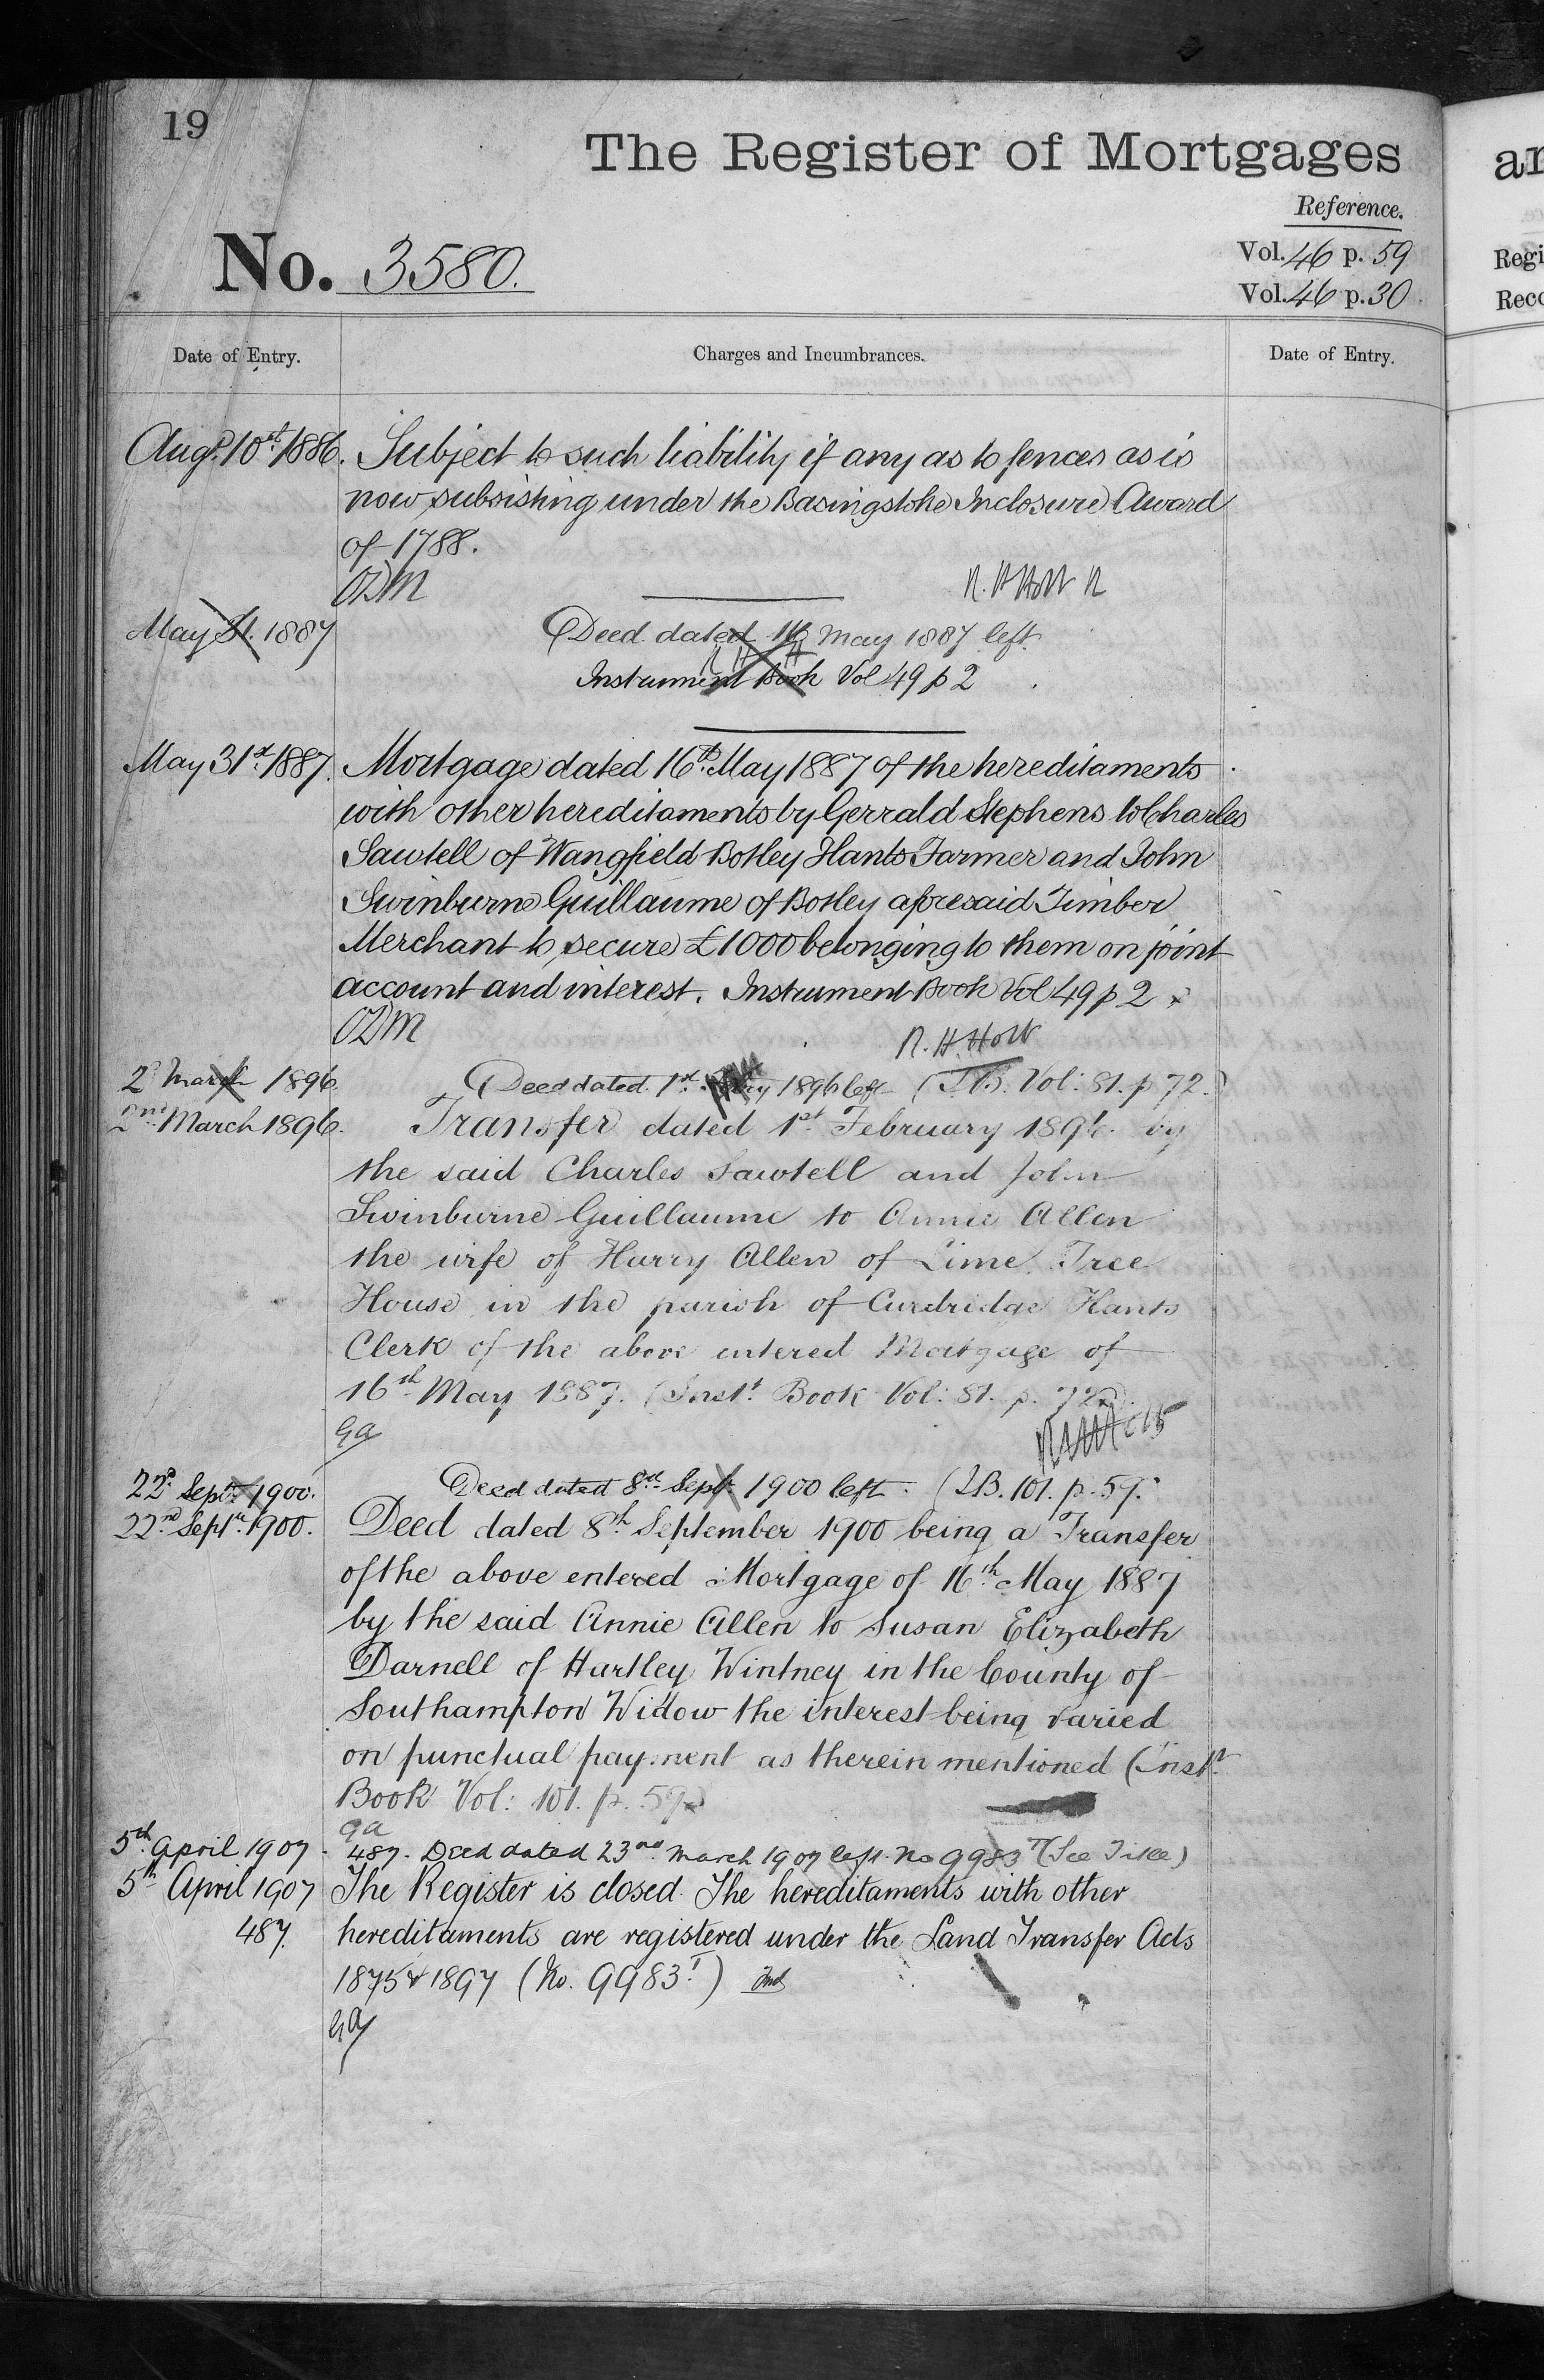 19
The Register of Mortgages
Reference.
No. 3580.
Vol. 46 p. 59
Vol. 46 p. 30
Date of Entry.
Charges and Incumbrances.
Date of Entry.
Augt. 10th 1886. Subject to such liability if any as to fences as is
now subsisting under the Basingstoke Inclosure Award
of 1788.
ODM
R. H. Holt R
May 31. 1887 Deed dated 16 May 1887 left.
Instrument Book Vol 49 p 2
May 31st 1887. Mortgage dated 16th May 1887 of the hereditaments
with other hereditaments by Gerrald Stephens to Charles
Sawtell of Wangfield Botley Hants Farmer and John
Swinburne Guillaume of Botley aforesaid Timber
Merchant to secure £1000 belonging to them on joint
account and interest. Instrument Book Vol 49 p 2
ODM
R. H. Holt
2d March 1896 Deed dated 1st 1896 left (I.B. Vol: 81. p 72.)
2nd March 1896. Transfer dated 1st February 1896 by
the said Charles Sawtell and John
Swinburne Guillaume to Annie Allen
the wife of Harry Allen of Lime Tree
House in the parish of Curdridge Hants
Clerk of the above entered Mortgage of
16th May 1887. (Inst. Book Vol: 81. p. 72)
GA
22d Septr. 1900. Deed dated 8th Sept. 1900 left. (I.B. 101. p. 59.
22nd Septr. 1900. Deed dated 8th September 1900 being a Transfer
of the above entered Mortgage of 16th May 1887
by the said Annie Allen to Susan Elizabeth
Darnell of Hartley Wintney in the County of
Southampton Widow the interest being varied
on punctual payment as therein mentioned (Instt.
Book Vol: 101. p. 59)
GA
5th April 1907. 487. Deed dated 23rd March 1907 left. No 9983T (See Title)
5th April 1907 The Register is closed. The hereditaments with other
487. hereditaments are registered under the Land Transfer Acts
1875 & 1897 (No. 9983T)
GA
an
Regi
Reco